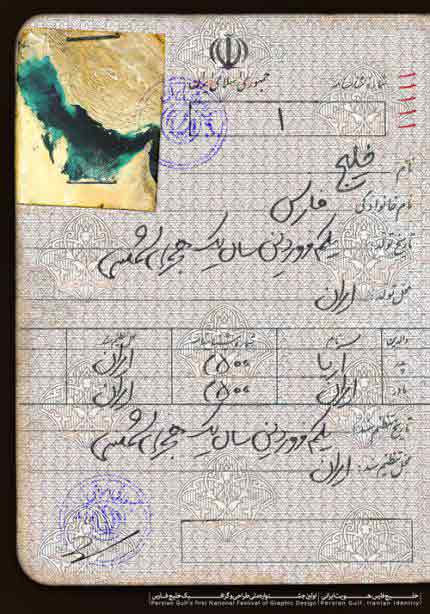 جمهوری اسلامی ایران
شماره شناسنامه
۱۱۱۱۱۱
۱
نام خلیج
نام خانوادگی فارس
تاریخ تولد: یکم فروردین سال یک هجری شمسی
محل تولد: ایران
والدین نام شماره شناسنامه محل تنظیم سند
پدر آریا ۲۵۰۰ ایران
مادر ایران ۲۵۰۰ ایران
تاریخ تنظیم سند: یکم فروردین سال یک هجری شمسی
محل تنظیم سند: ایران
خلیج فارس هویت ایرانی | اولین جشنواره ملی طراحی و گرافیک خلیج فارس
Persian Gulf's first National Festival of Graphic Design | Persian Gulf, Iranian Identity